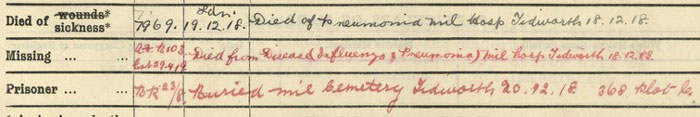 Ldn.
Died of wounds* sickness* 7969. 19.12.18. Died of Pneumonia mil Hosp Tidworth 18.12.18.
Missing ... ... Died from Disease (Influenza & Pneumonia) Mil Hosp Tidworth 18.12.18.
Prisoner ... ... BR 23/8. Buried mil Cemetery Tidworth 20.12.18 368 Plot